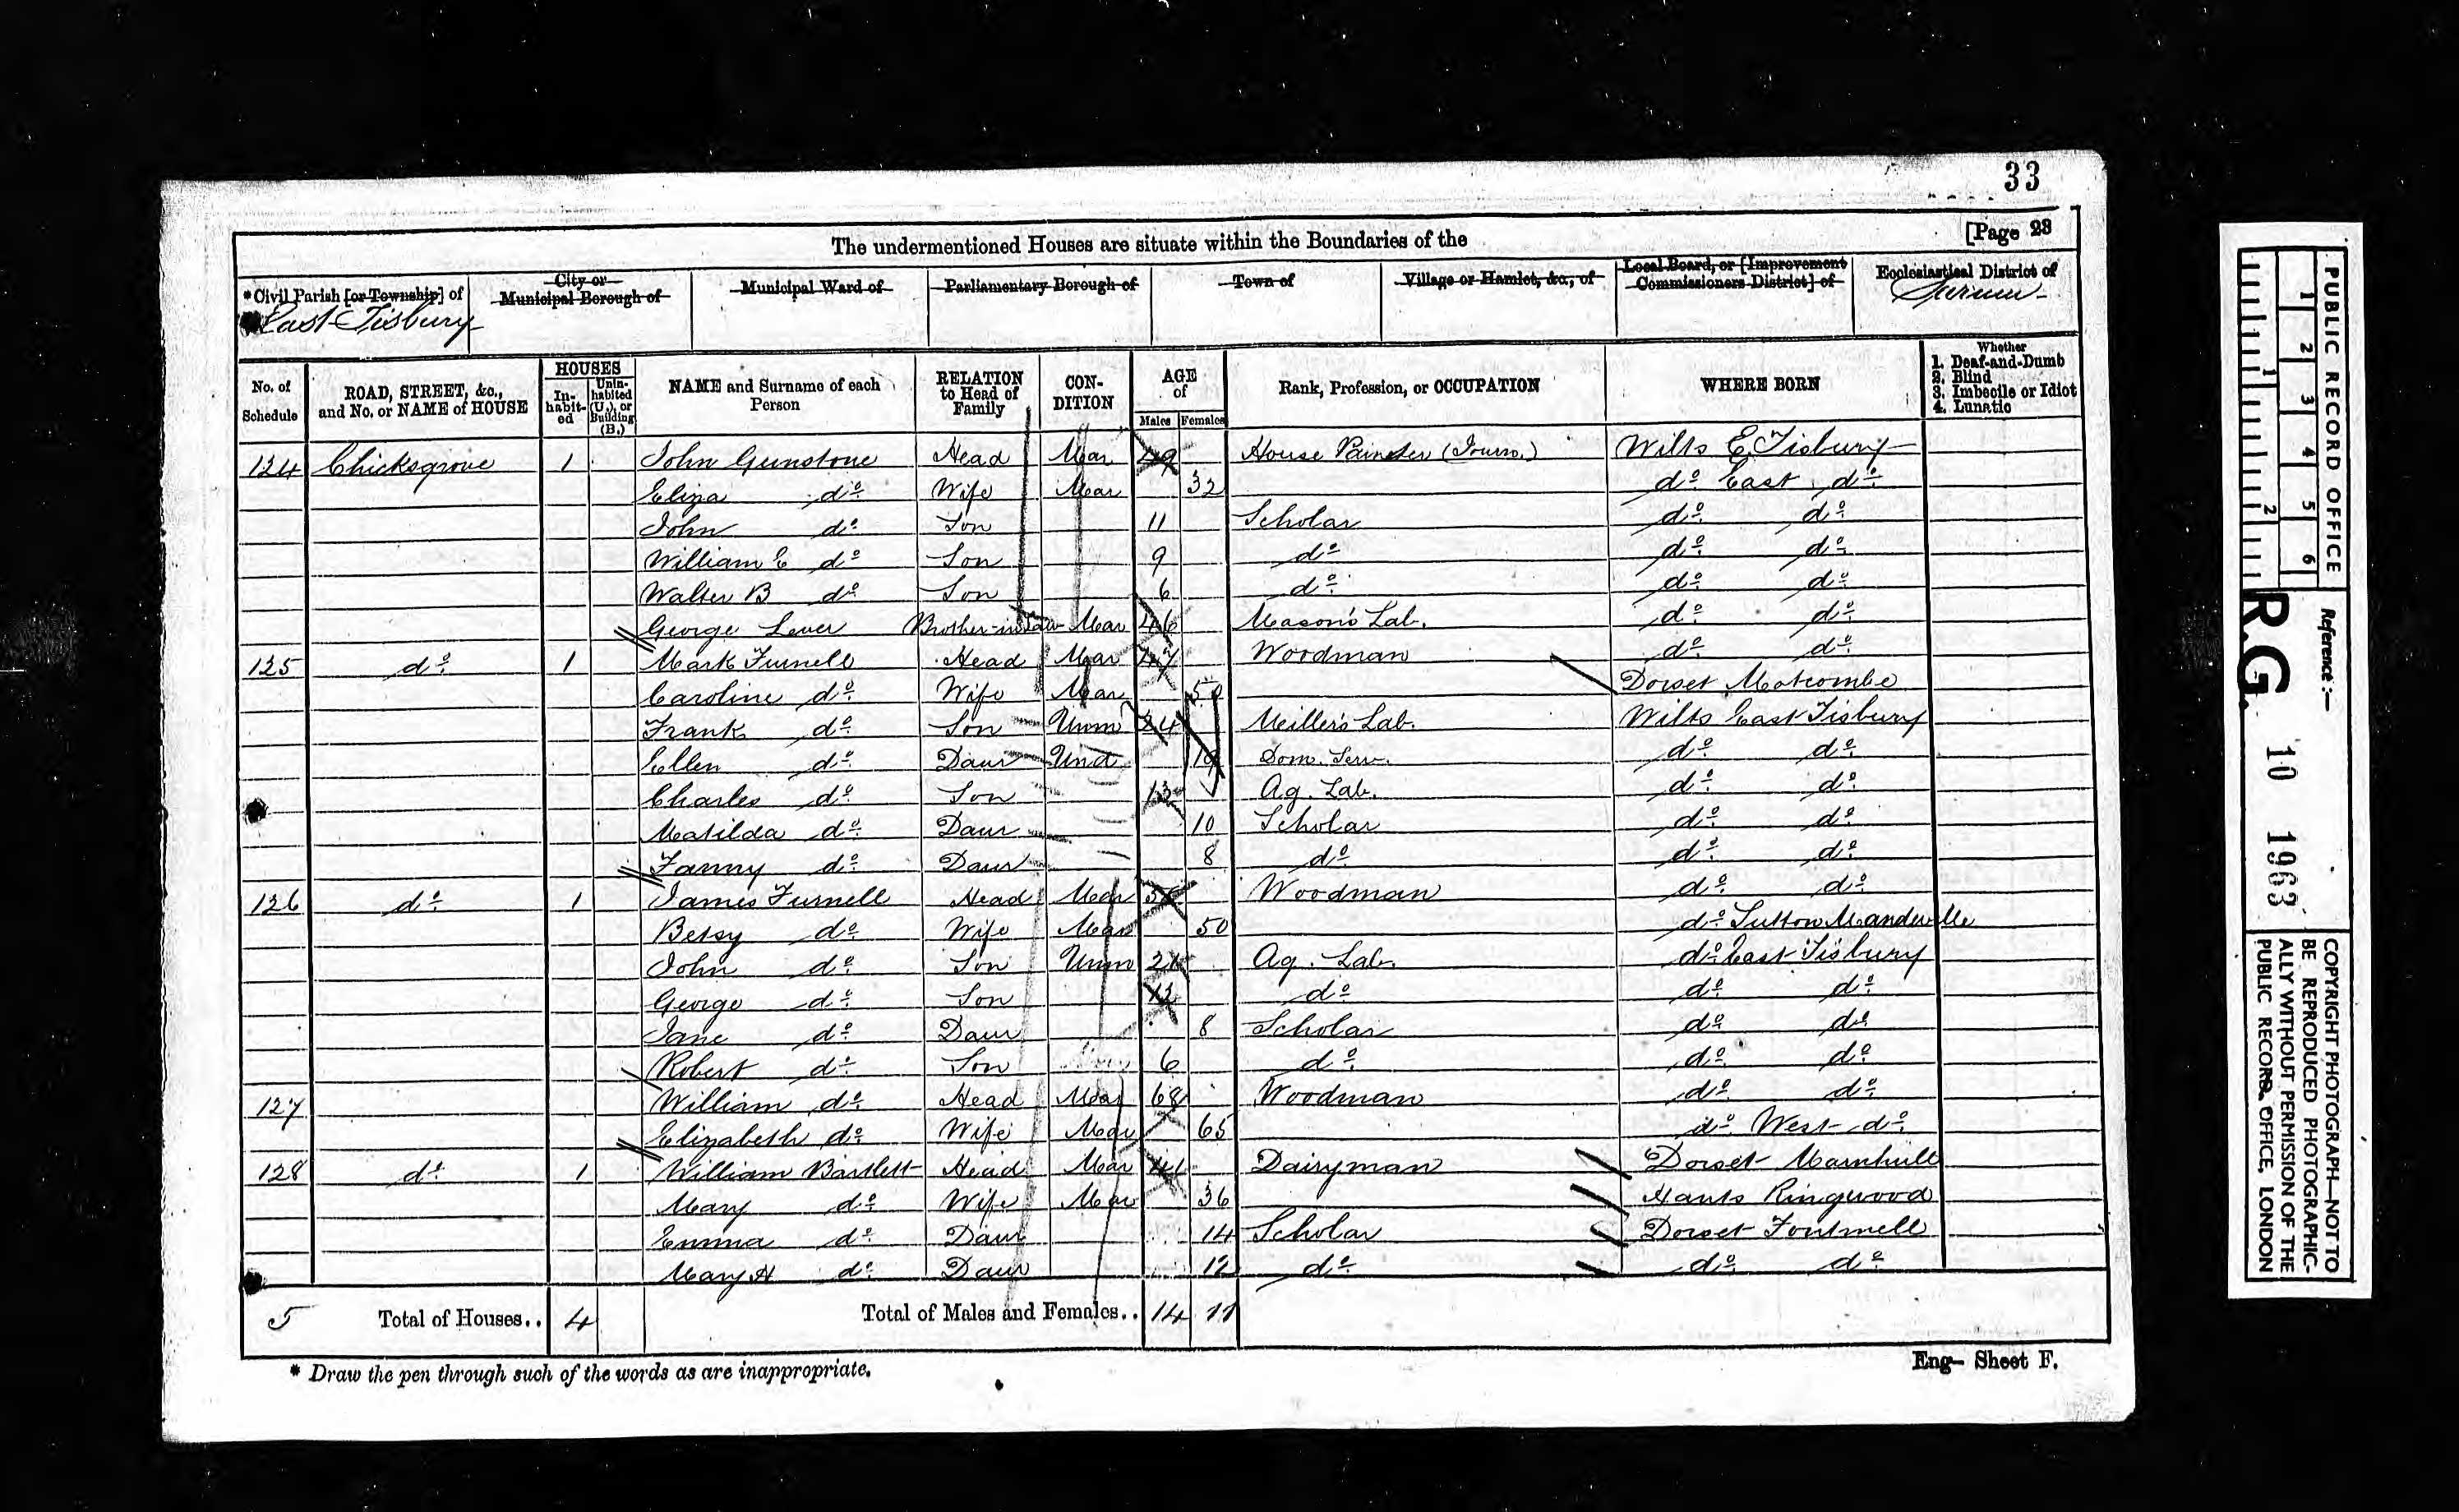 33
The undermentioned Houses are situate within the Boundaries of the [Page 23
*Civil Parish [or Township] of City or Municipal Borough of Municipal Ward of Parliamentary Borough of Town of Village or Hamlet, &c., of Local Board, or [Improvement Commissioners District] of Ecclesiastical District of
East Tisbury Sarum
No. of Schedule ROAD, STREET, &c., and No. or NAME of HOUSE HOUSES Inhabited Uninhabited (U.), or Building (B.) NAME and Surname of each Person RELATION to Head of Family CONDITION AGE of Males Females Rank, Profession, or OCCUPATION WHERE BORN Whether 1. Deaf-and-Dumb 2. Blind 3. Imbecile or Idiot 4. Lunatic
124 Chicksgrove 1 John Gunstone Head Mar 49 House Painter (Journ.) Wilts E. Tisbury
Eliza do. Wife Mar 32 do. East do.
John do. Son 11 Scholar do. do.
William E do. Son 9 do. do. do.
Walter B do. Son 6 do. do. do.
George Lever Brother-in-law Mar 46 Mason's Lab. do. do.
125 do. 1 Mark Furnell Head Mar 47 Woodman do. do.
Caroline do. Wife Mar 50 Dorset Motcombe
Frank do. Son Unm 24 Miller's Lab. Wilts East Tisbury
Ellen do. Daur 19 Dom. Serv. do. do.
Charles do. Son 13 Ag. Lab. do. do.
Matilda do. Daur 10 Scholar do. do.
Fanny do. Daur 8 do. do. do.
126 do. 1 James Furnell Head Mar Woodman do. do.
Betsy do. Wife Mar 50 do. Sutton Mandeville
John do. Son Unm 21 Ag. Lab. do. East Tisbury
George do. Son 12 do. do. do.
Jane do. Daur 8 Scholar do. do.
Robert do. Son 6 do. do. do.
127 William do. Head Mar 68 Woodman do. do.
Elizabeth do. Wife Mar 65 do. West do.
128 do. 1 William Bartlett Head Mar 41 Dairyman Dorset Marnhull
Mary do. Wife Mar 36 Hants Ringwood
Emma do. Daur 14 Scholar Dorset Fontmell
Mary A do. Daur 12 do. do. do.
5 Total of Houses.. 4 Total of Males and Females.. 14 11
* Draw the pen through such of the words as are inappropriate.
Eng- Sheet F.
PUBLIC RECORD OFFICE
1 2 3 4 5 6
1 2
Reference :-
R.G. 10 1963
COPYRIGHT PHOTOGRAPH—NOT TO
BE REPRODUCED PHOTOGRAPHIC-
ALLY WITHOUT PERMISSION OF THE
PUBLIC RECORD OFFICE, LONDON